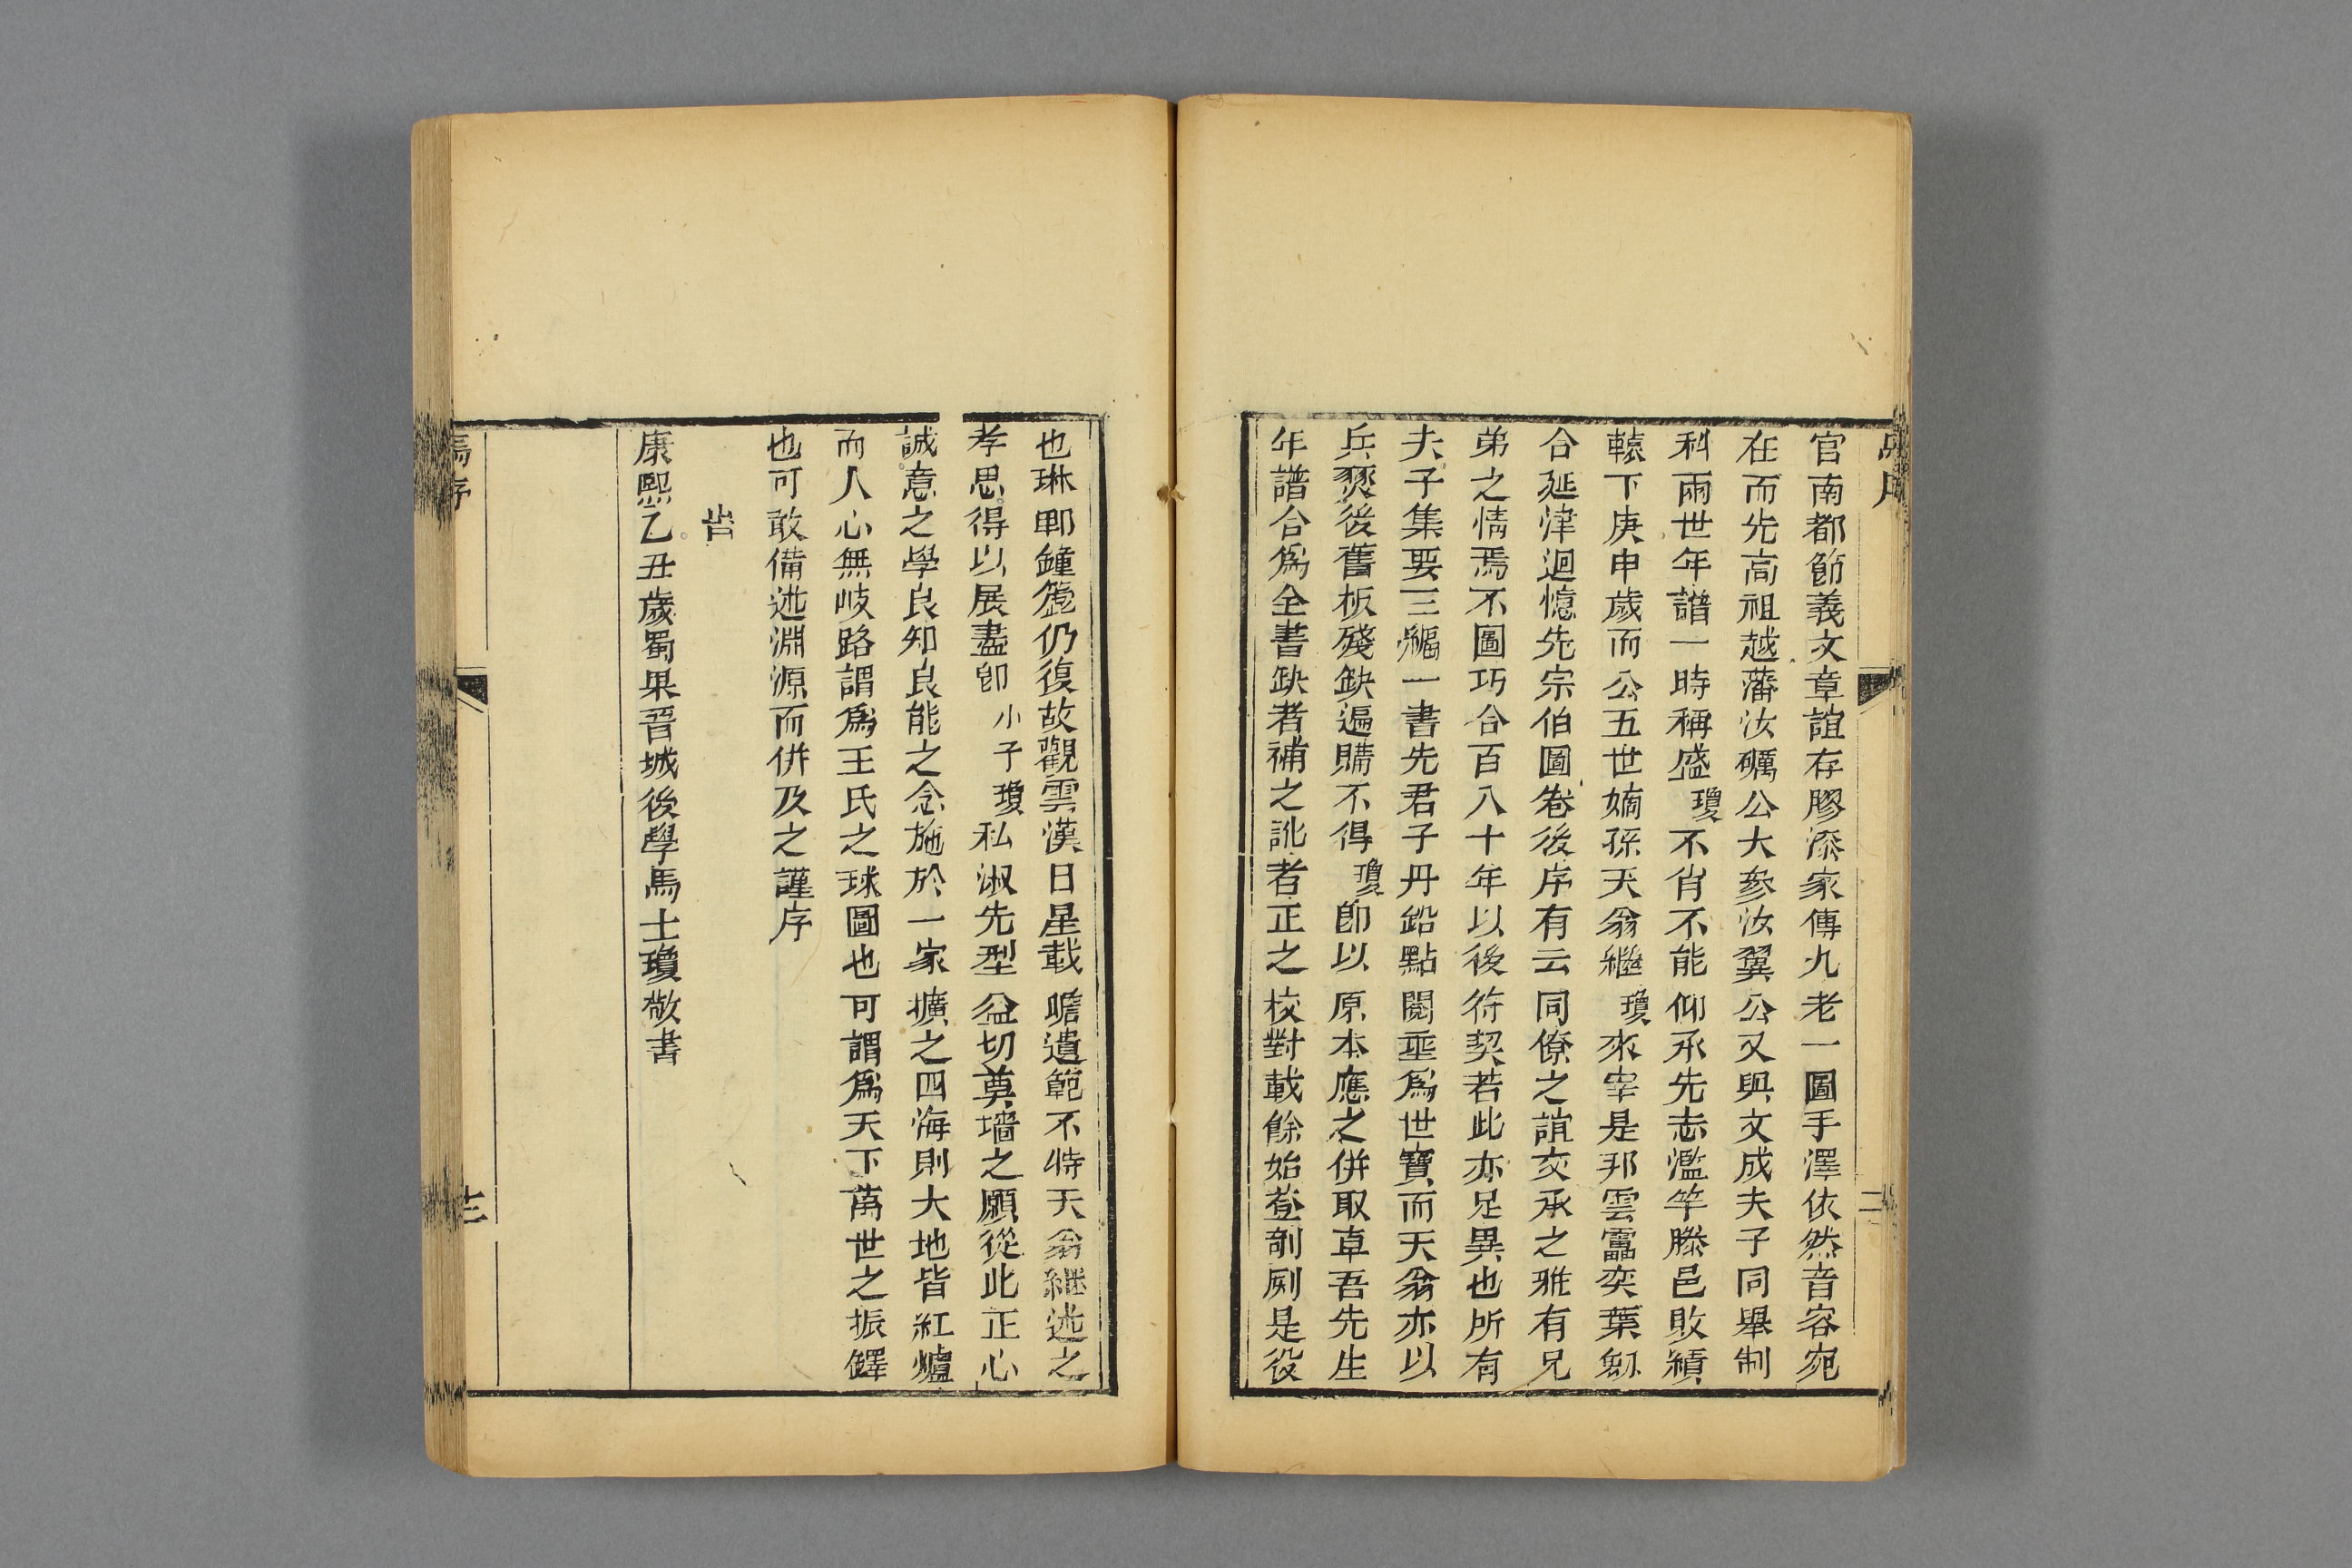 官南都節義文章誼存膠漆家傳九老一圖手澤依然音容宛
在而先高祖越藩汝礪公大參汝翼公又與文成夫子同舉制
科兩世年譜一時稱盛瓊不肖不能仰承先志濫竽滕邑敗績
轅下庚申歲而公五世嫡孫天翁繼瓊來宰是邦雲靁奕葉劒
合延津迴憶先宗伯圖卷後序有云同僚之誼交承之雅有兄
弟之情焉不圖巧合百八十年以後符契若此亦足異也所有
夫子集要三編一書先君子丹鉛點閱垂爲世寶而天翁亦以
兵燹後舊板殘缺遍購不得瓊卽以原本應之併取草吾先生
年譜合爲全書缺者補之訛者正之校對載餘始登剞劂是役
也琳瑯鐘簴仍復故觀雲漢日星載瞻遺範不特天翁繼述之
孝思得以展盡卽小子瓊私淑先型益切奠墻之願從此正心
誠意之學良知良能之念施於一家擴之四海則大地皆紅爐
而人心無岐路謂爲王氏之球圖也可謂爲天下萬世之振鐸
也可敢備述淵源而併及之謹序
旹
康熙乙丑歲蜀果晉城後學馬士瓊敬書
馬序